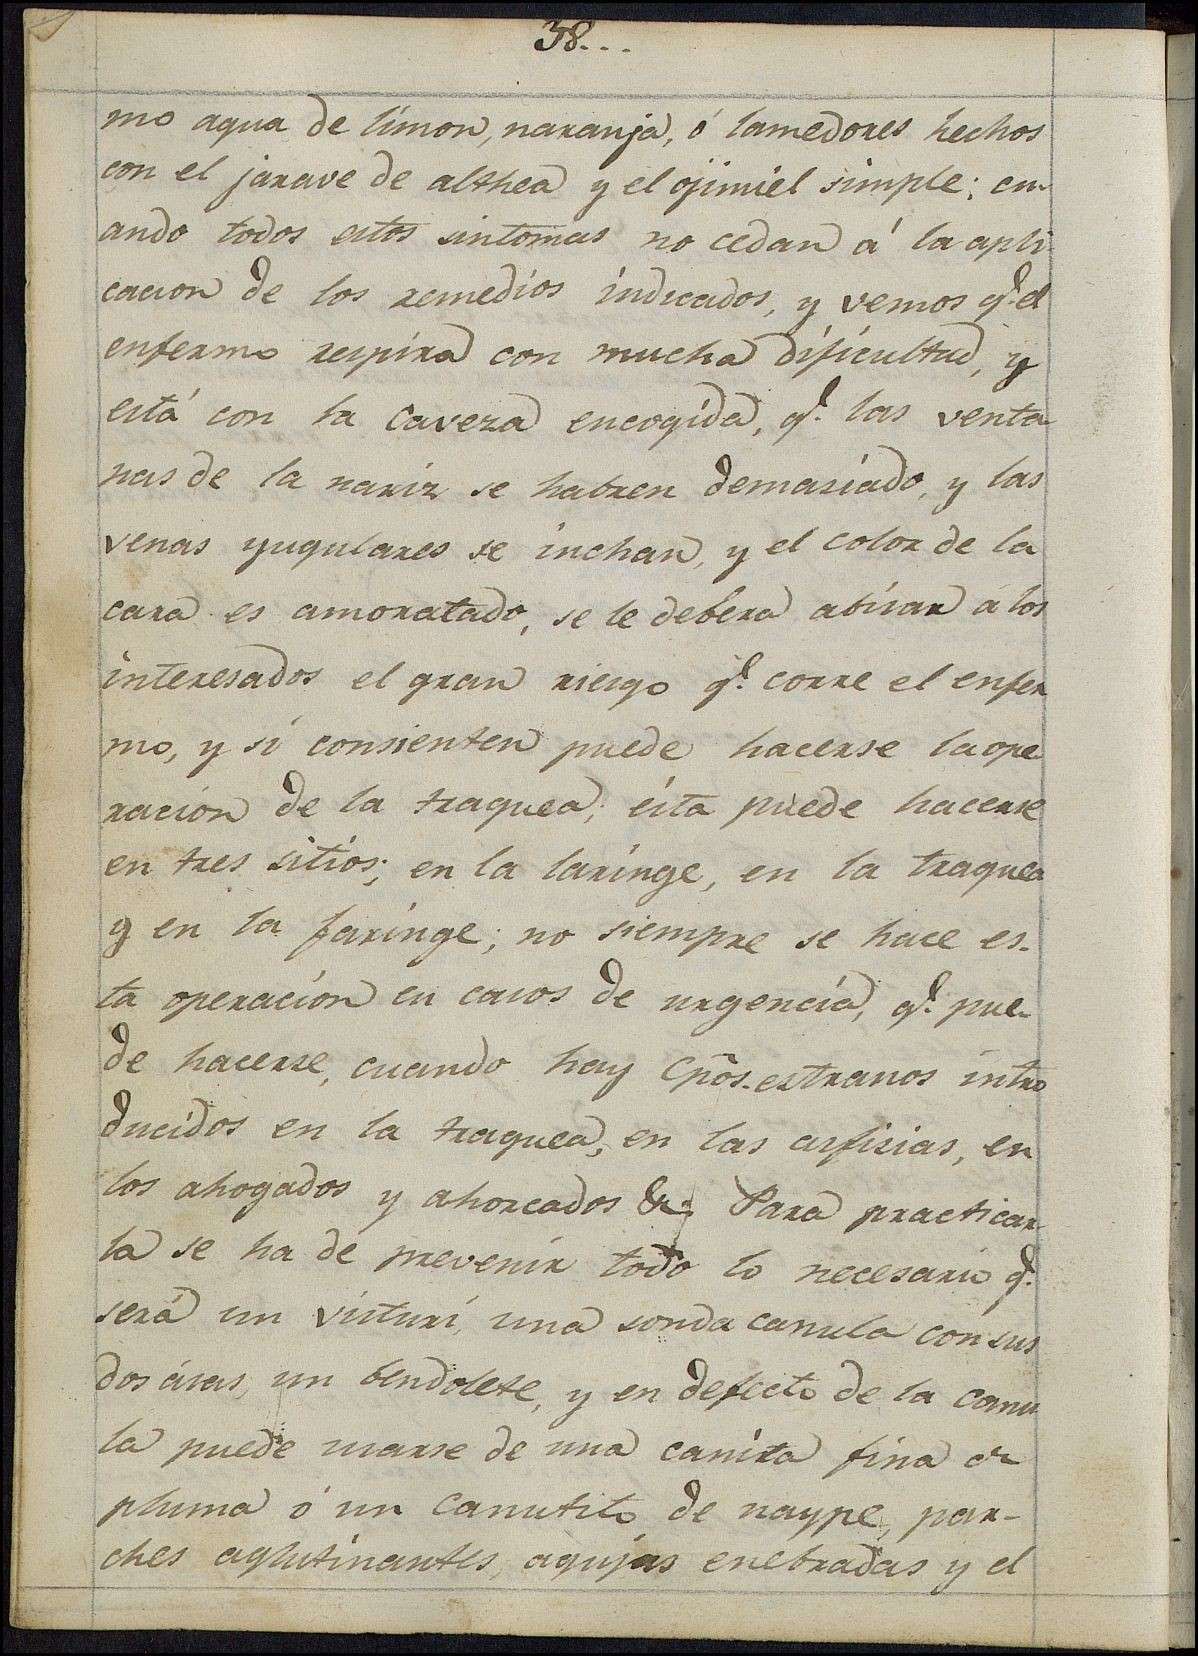 38...
mo agua de limon, naranja, ó lamedores hechos
con el jarave de althea y el ojimiel simple; cu-
ando todos estos sintomas no cedan á la apli
cacion de los remedios indicados, y vemos q.e el
enfermo respira con mucha dificultad, y
está con la caveza encogida, q.e las venta
nas de la nariz se habren demasiado, y las
venas yugulares se inchan, y el color de la
cara es amoratado, se le debera abisar á los
interesados el gran riesgo q.e corre el enfer
mo, y si consienten puede hacerse la ope
racion de la traquea; ésta puede hacerse
en tres sitios; en la laringe, en la traquea
y en la faringe; no siempre se hace es-
ta operacion en casos de urgencia, q.e pue-
de hacerse, cuando hay Cpôs. estranos intro
ducidos en la traquea, en las asfisias, en
los ahogados y ahorcados &. Para practicar
la se ha de prevenir todo lo necesario q.e
será un visturí, una sonda canula con sus
dos ásas, un bendolete, y en defecto de la canu
la puede usarse de una canita fina de
pluma ó un canutito de naype, par-
ches aglutinantes, agujas enebradas y el